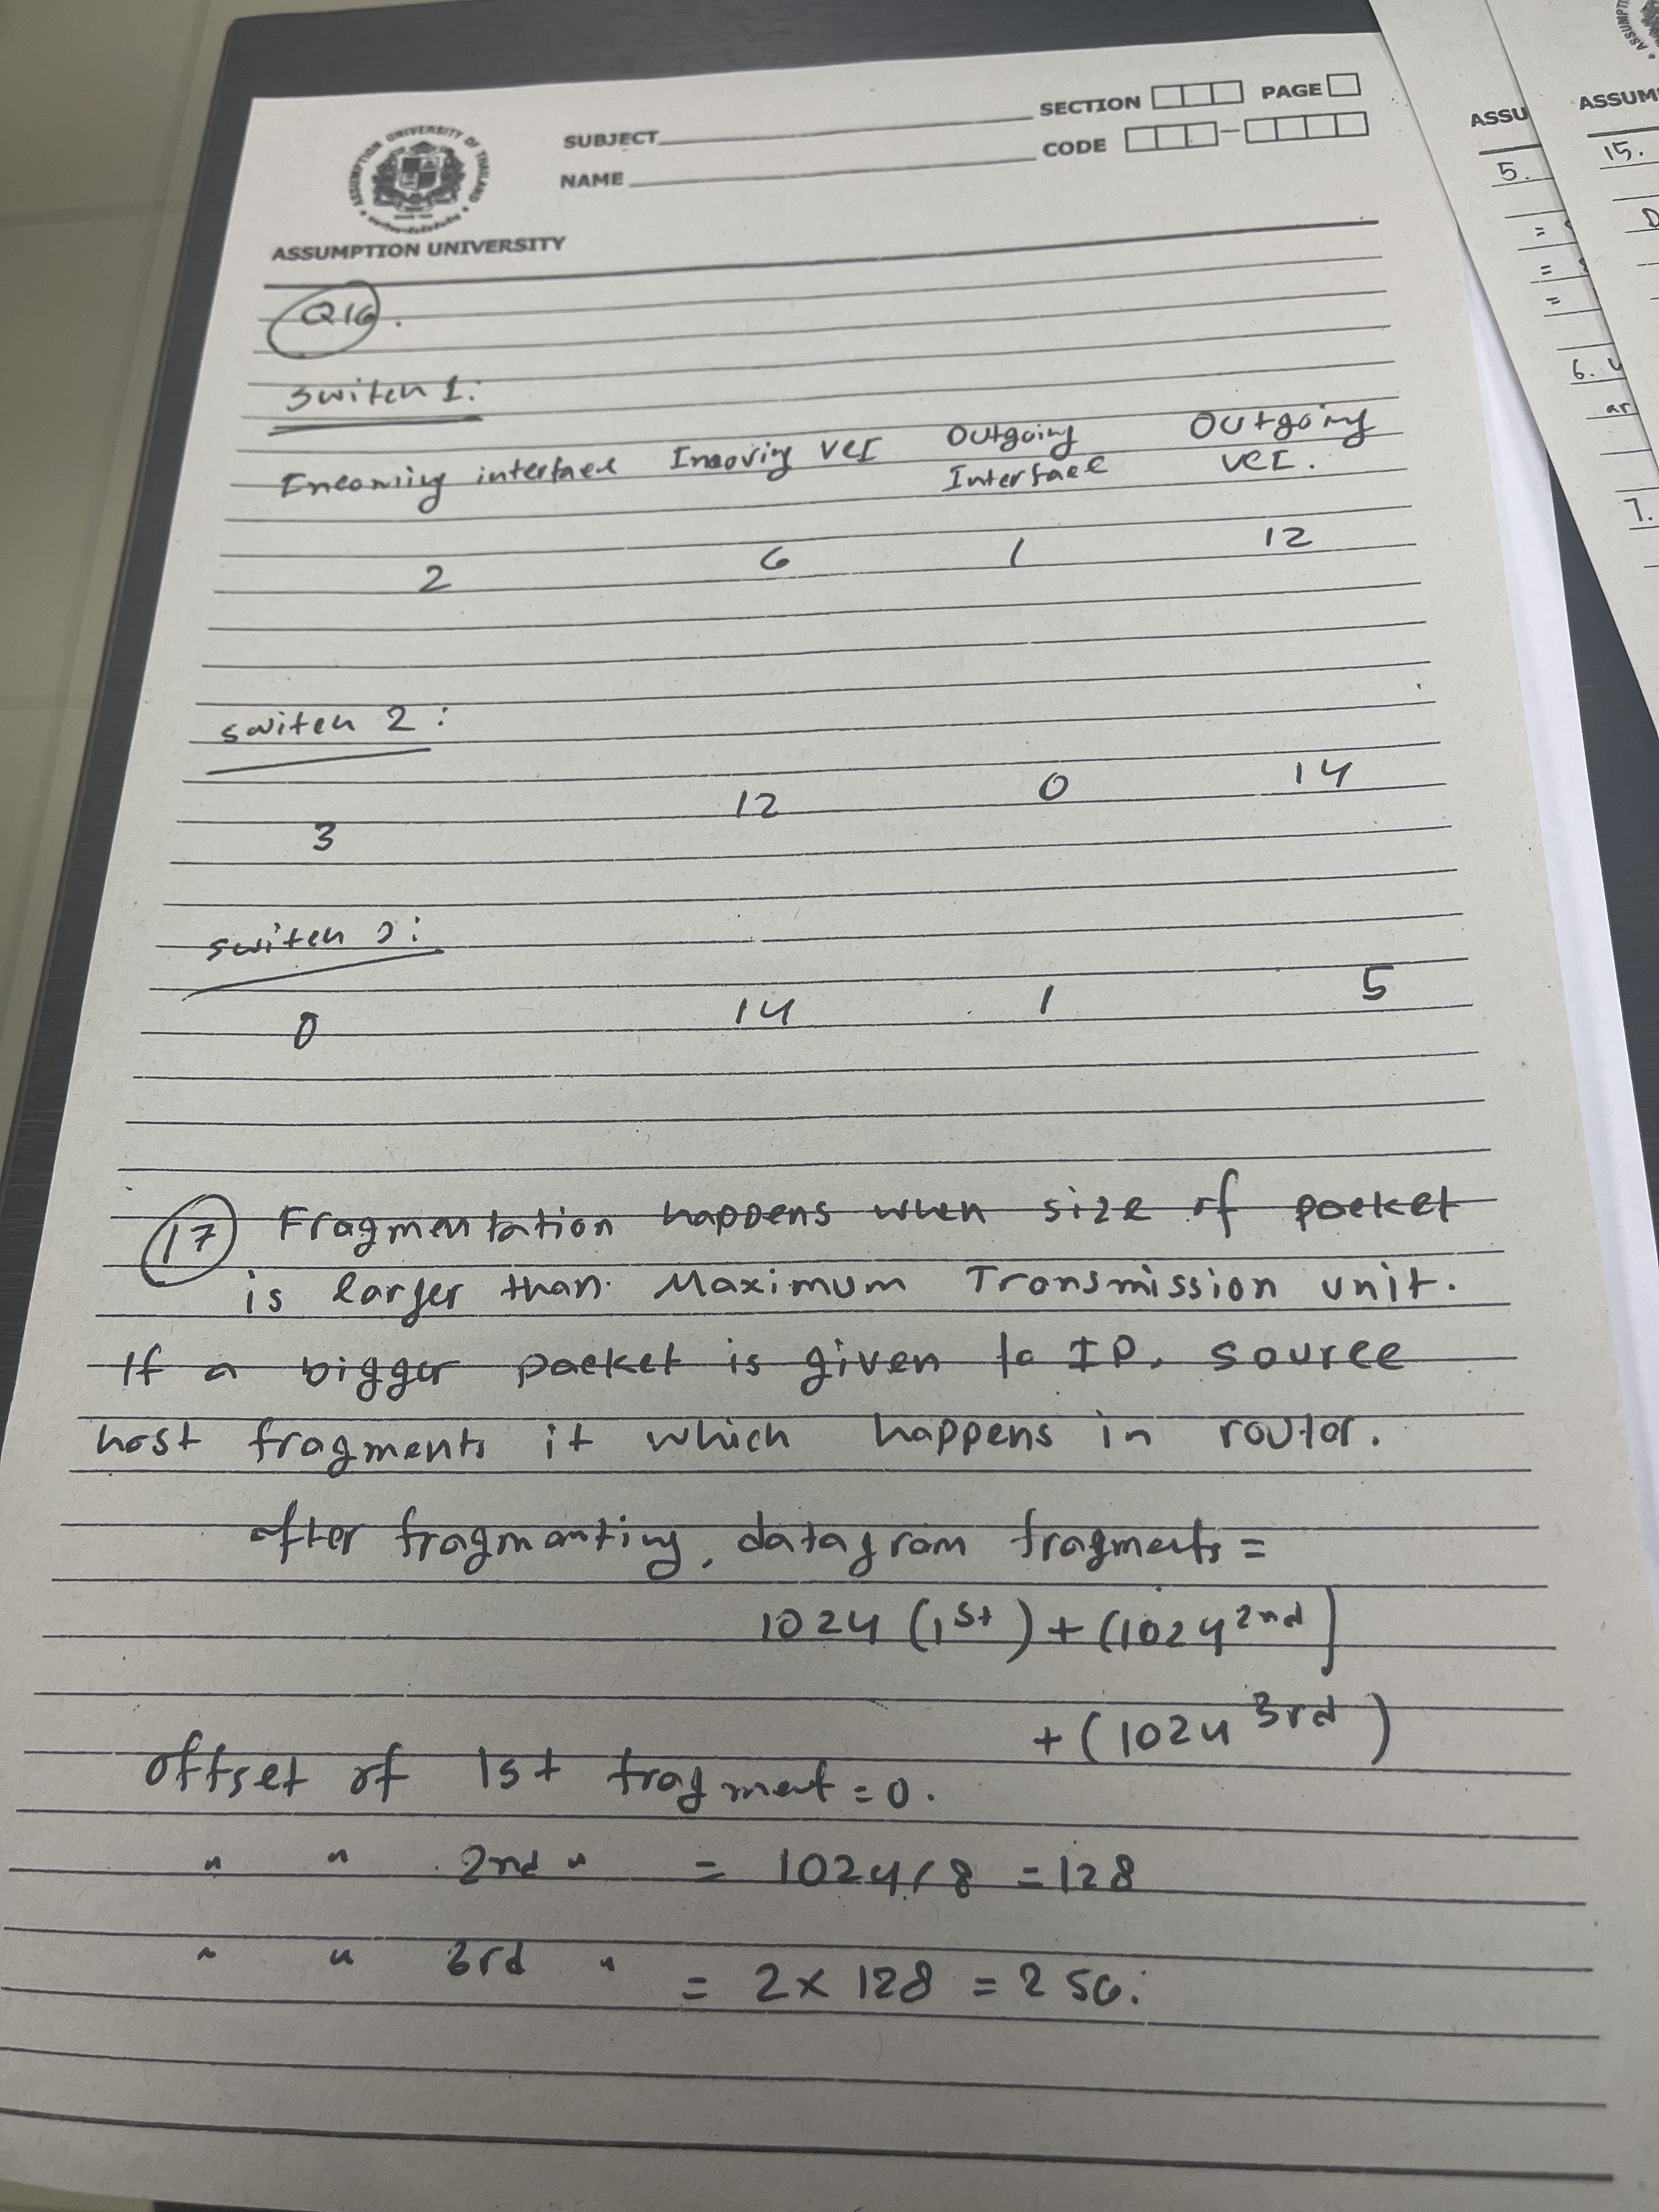 SECTION PAGE
SUBJECT
CODE -
NAME
ASSUMPTION UNIVERSITY OF THAILAND
ASSUMPTION UNIVERSITY
Q16.
Switch 1:
Incoming interface Incoving VCI Outgoing Interface Outgoing VCI.
2 6 1 12
switch 2:
3 12 0 14
switch 3:
0 14 1 5
17 Fragmentation happens when size of packet
is larger than Maximum Transmission unit.
If a bigger packet is given to IP, source
host fragments it which happens in router.
after fragmanting, datagram fragments =
1024 (1st) + (1024 2nd)
+ (1024 3rd)
offset of 1st fragment = 0.
" " 2nd " = 1024/8 = 128
" " 3rd " = 2 x 128 = 256.
ASSU
5.
=
=
=
6.
ar
7.
ASSUM
15.
D